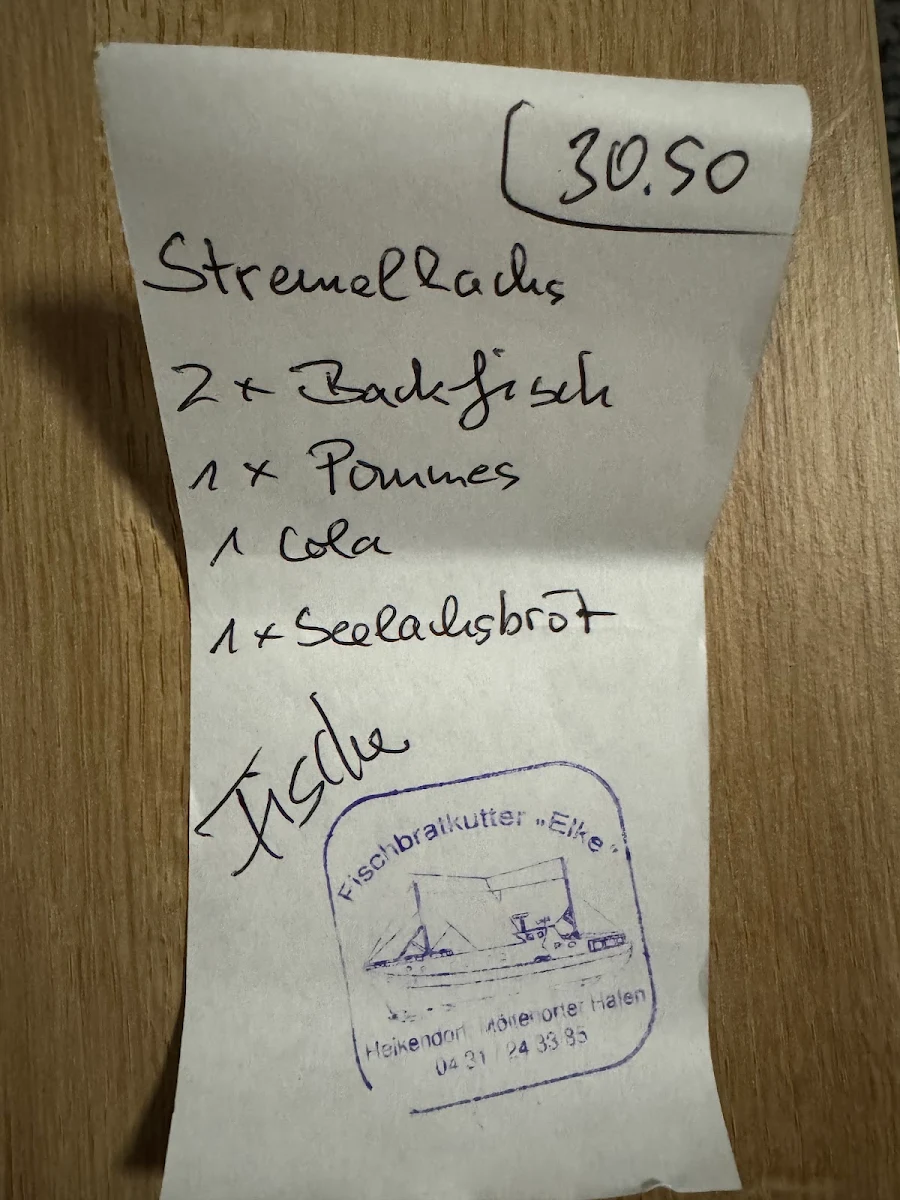 30.50
Stremellachs
2x Backfisch
1x Pommes
1 Cola
1x Seelachsbrot
Fische
Fischbratkutter „Elke“
Heikendorf, Möltenorter Hafen
04 31 / 24 33 85